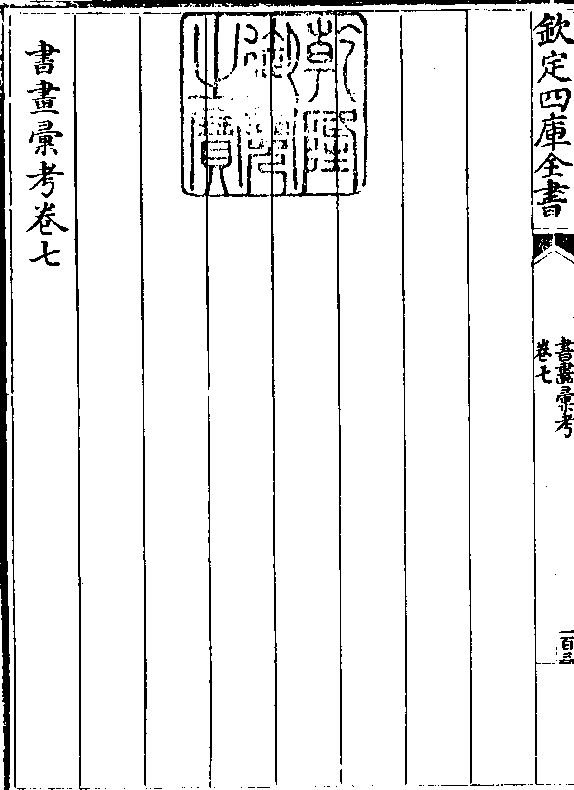 欽定四庫全書
書畫彙考
卷七
乾隆
御覽
之寶
書畫彙考卷七